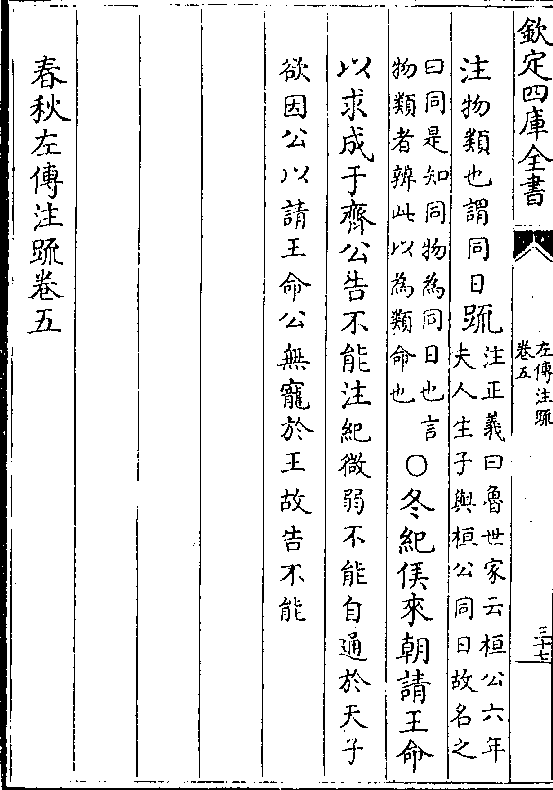 欽定四庫全書
左傳注䟽
卷五
三十七
注物類也謂同日䟽
注正義曰魯世家云桓公六年
夫人生子與桓公同日故名之
曰同是知同物為同日也言
物類者辨此以為類命也
〇冬紀侯來朝請王命
以求成于齊公告不能注紀微弱不能自通於天子
欲因公以請王命公無寵於王故告不能
春秋左傳注䟽卷五